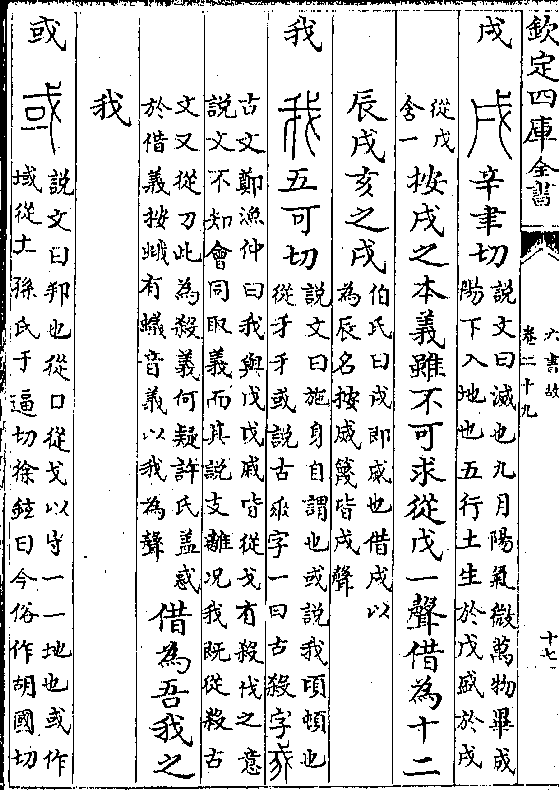 欽定四庫全書
六書故
卷二十九
十七
戌 戌 辛聿切
說文曰滅也九月陽氣微萬物畢成
陽下入地也五行土生於戊盛於戌
從戊
含一
按戌之本義雖不可求從戊一聲借為十二
辰戌亥之戌
伯氏曰戌即戚也借戌以
為辰名按威篾皆戌聲
我 我 五可切
說文曰施身自謂也或說我頃頓也
從矛矛或說古𠂹字一曰古殺字𢦠
古文鄭漁仲曰我與戊戌戚皆從戈有殺伐之意
說文不知會同取義而其說支離况我既從殺古
文又從刀此為殺義何疑許氏盖惑
於借義按蛾有蟻音義以我為聲
借為吾我之
我
或 或
說文曰邦也從口從戈以守一一地也或作
域從土孫氏于逼切徐鉉曰今俗作胡國切